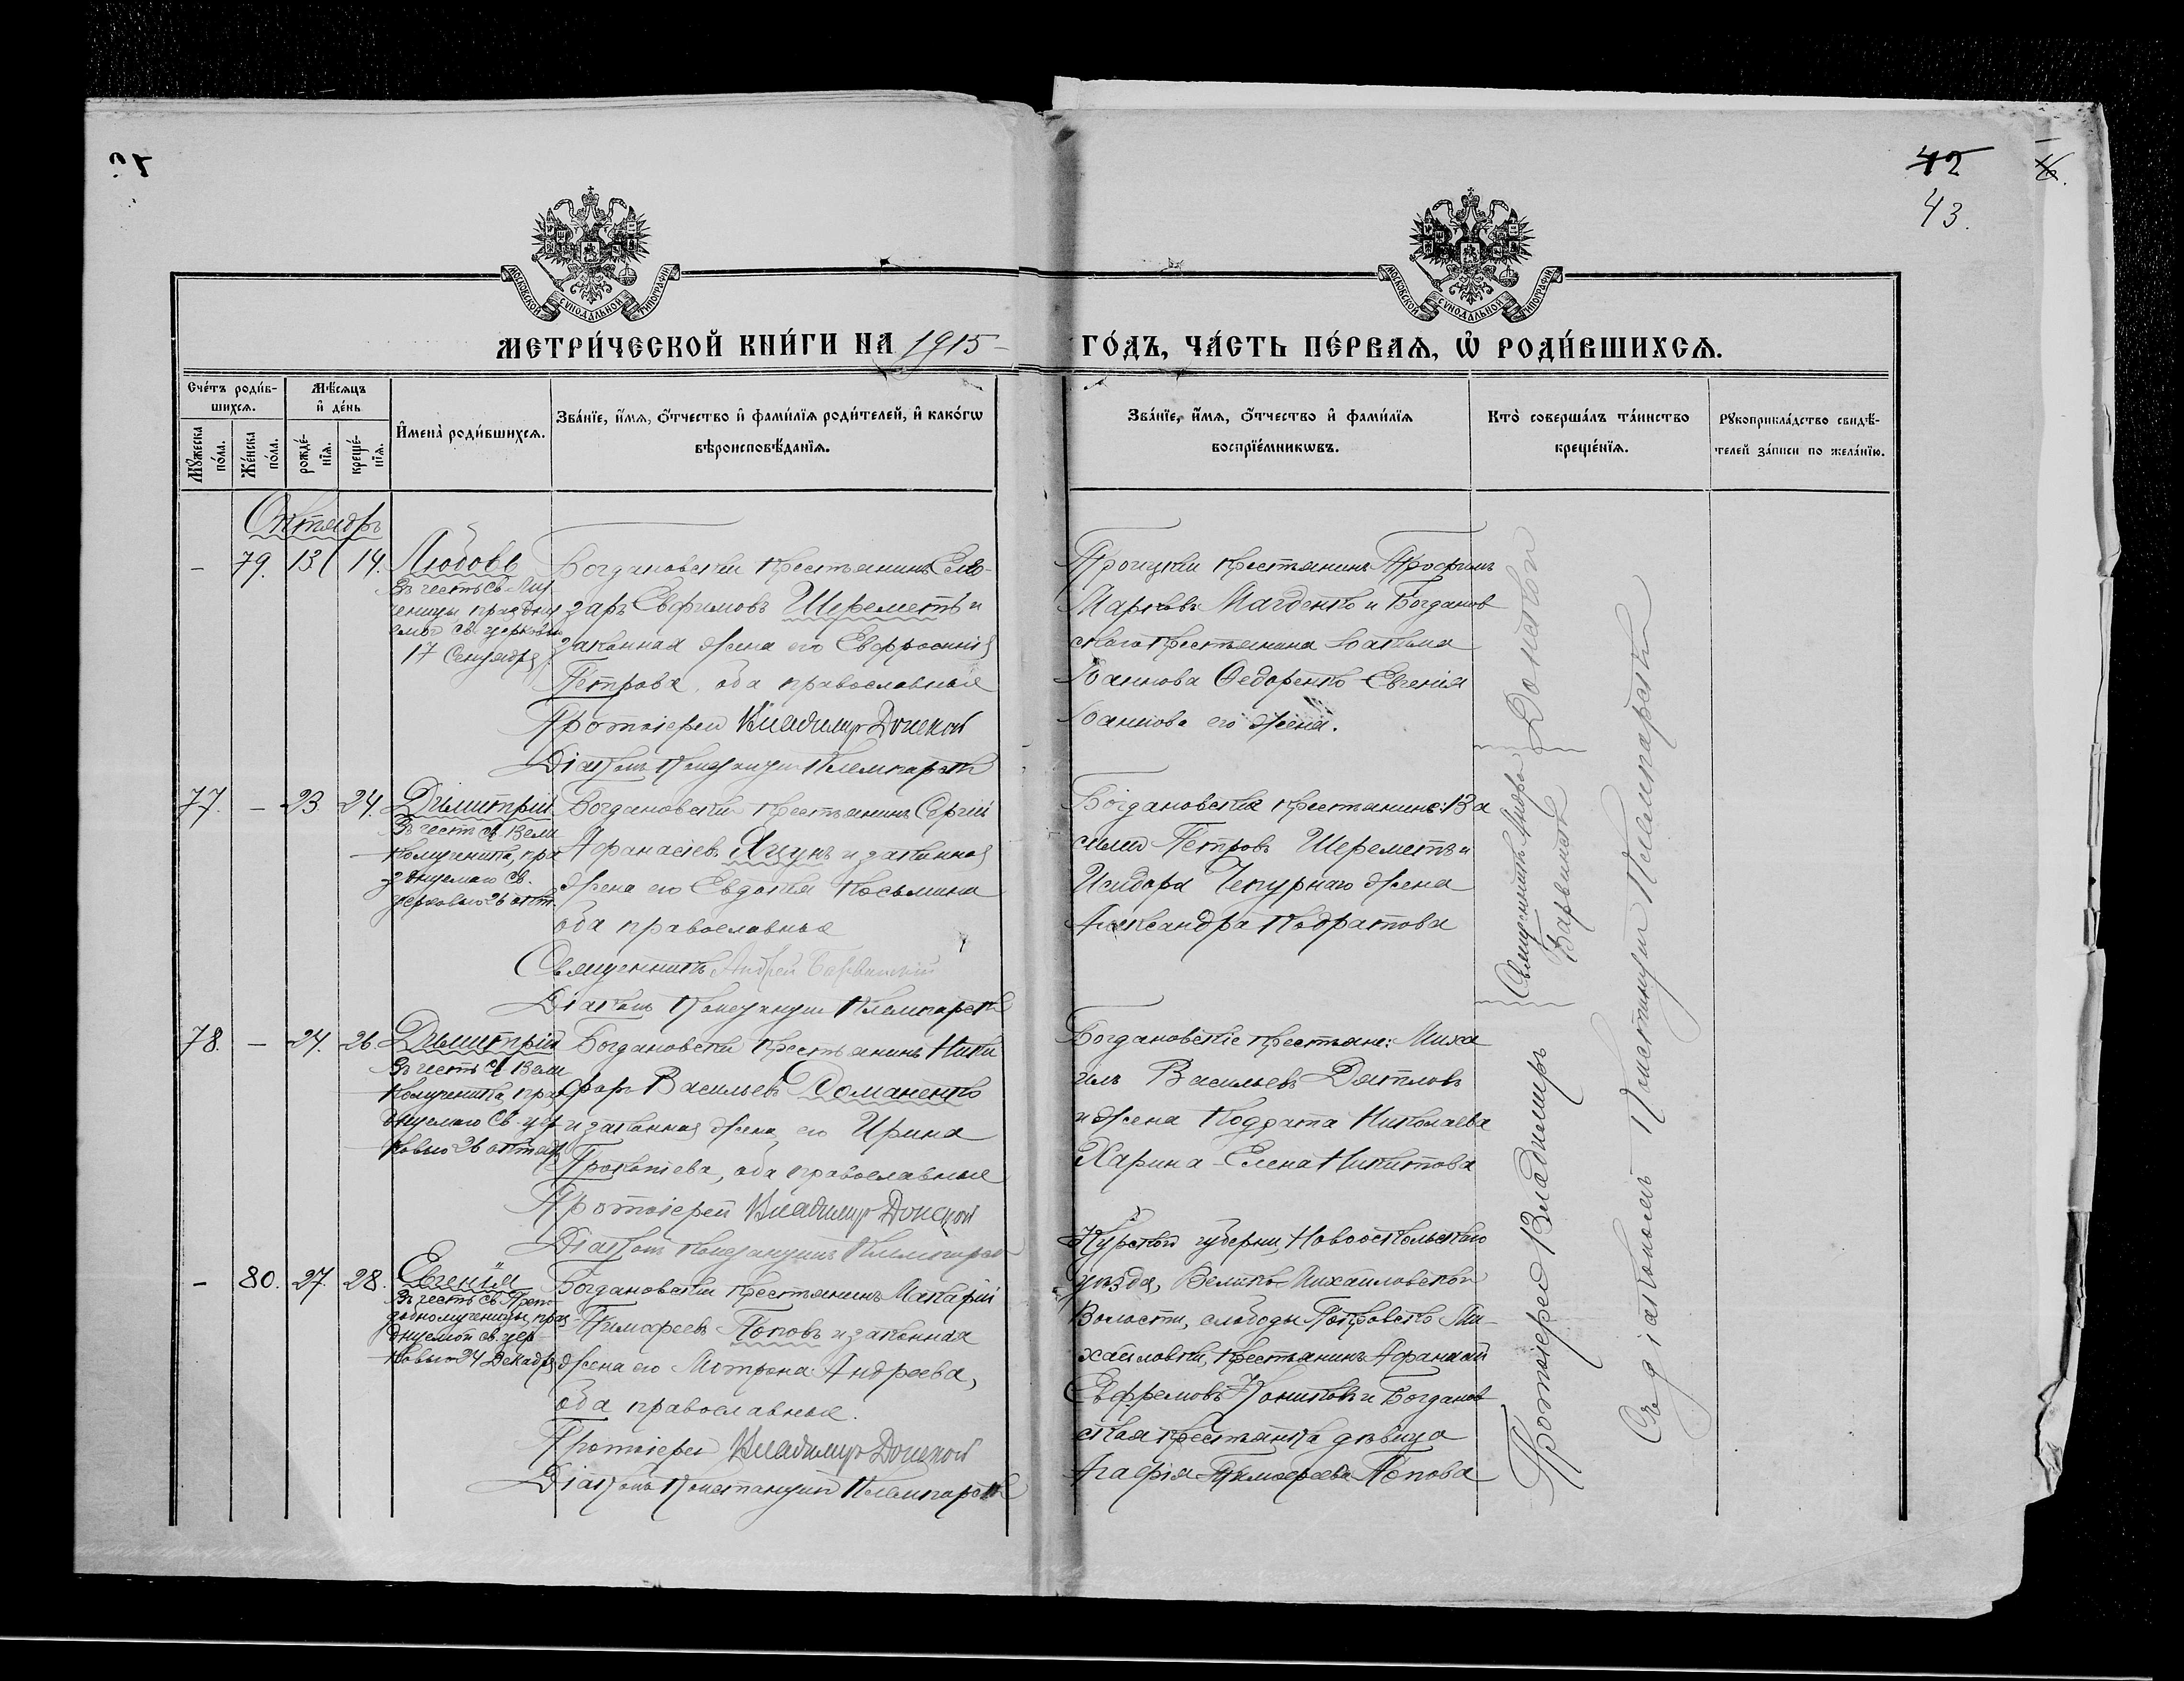 42
43.
МОСКОВСКОЙ СѴНОДАЛЬНОЙ ТИПОГРАФІИ
МОСКОВСКОЙ СѴНОДАЛЬНОЙ ТИПОГРАФІИ
МЕТРИ́ЧЕСКОЙ КНИ́ГИ НА 1915
ГО́ДЪ, ЧА́СТЬ ПЕ́РВАѦ, Ѽ РОДИ́ВШИХСѦ.
Сче́тъ роди́в-
шихсѧ.
Мꙋ́жеска по́ла.
Же́нска по́ла.
Мѣ́сѧцъ
и҆ де́нь
рожде́-
нїѧ.
креще́-
нїѧ.
И҆мена̀ роди́вшихсѧ.
Зва́нїе, и҆́мѧ, ѻ҆́тчество и҆ фами́лїѧ роди́телей, и҆ како́гѡ
вѣроисповѣ́данїѧ.
Зва́нїе, и҆́мѧ, ѻ҆́тчество и҆ фами́лїѧ
воспрїе́мникѡвъ.
Кто̀ соверша́лъ та́инство
креще́нїѧ.
Рꙋкоприкла́дство свидѣ́-
телей за́писи по жела́нїю.
Октябрь
- 79. 13 14. Любовь
Въ честь св. Му-
ченицы праздну
емой св. церковью
17 Сентября
Богдановскій крестьянинъ Елеа-
заръ Евфимовъ Шереметъ и
законная жена его Евфросинія
Петрова, оба православные
Протоіерей Владимиръ Донской
Діаконъ Константинъ
Троицкій крестьянинъ Трофимъ
Марковъ Магденко и Богданов
скаго крестьянина Іоакима
Іоаннова Ѳедоренко Евгенія
Іоаннова его жена.
77. - 23. 24. Димитрій
Въ честь св. Вели
комученика, пра
зднуемаго св.
церковью 26 окт.
Богдановскій крестьянинъ Сергій
Афанасіевъ Яцунъ и законная
жена его Евдокія Косьмина
оба православные
Священникъ Андрей
Діаконъ Константинъ
Богдановскіе крестьянинъ: Ва
силій Петровъ Шереметъ и
Исидора Чепурнаго жена
Александра Кодратова
78. - 24. 26. Димитрій
Въ честь св. Вели
комученика, праз
днуемаго св. цер
ковью 26 октяб
Богдановскій крестьянинъ Ники
форъ Васильевъ Доманенко
и законная жена его Ирина
Прокопіева, оба православные
Протоіерей Владимиръ Донской
Діаконъ Константинъ
Богдановскіе крестьяне: Миха
илъ Васильевъ Дятловъ
и жена Кодрата Николаева
Харина Елена Никитова
- 80. 27. 28. Евгенія
Въ честь св. Преп
добномученицы, праз-
днуемой св. цер-
ковью 24 Декабря
Богдановскій крестьянинъ Макарій
Тимофеевъ Поповъ и законная
жена его Мотрона Андреева,
оба православные.
Протоіерей Владимиръ Донской
Діаконъ Константинъ
Курской губерніи, Новооскольскаго
уѣзда, Велико-Михайловской
Волости, слободы Покровско-Ми-
хайловки, крестьянинъ Афанасій
Евфремовъ и Богданов
ская крестьянка дѣвица
Агафія Тимофеева Попова
Протоіерей Владимиръ Донской
Священникъ Андрей
Съ діакономъ Константиномъ